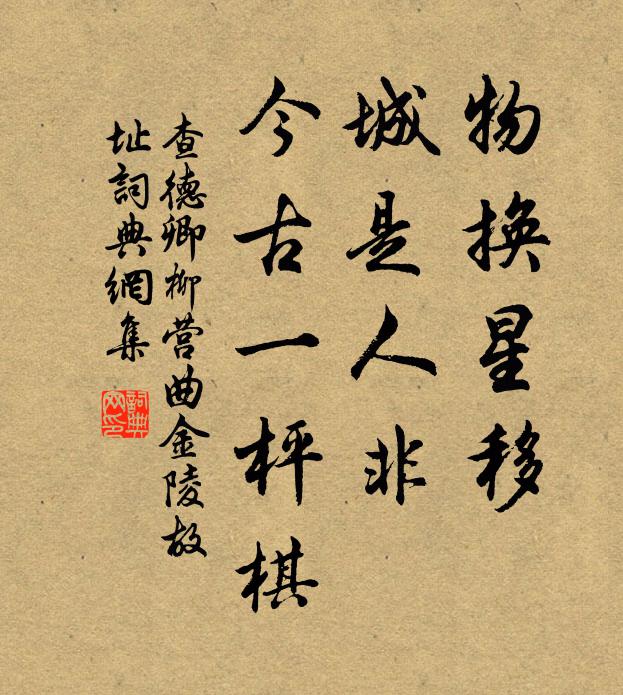 物换星移
城是人非
今古一枰棋
查德卿柳营曲金陵故
址詞典網集
詞典
网印